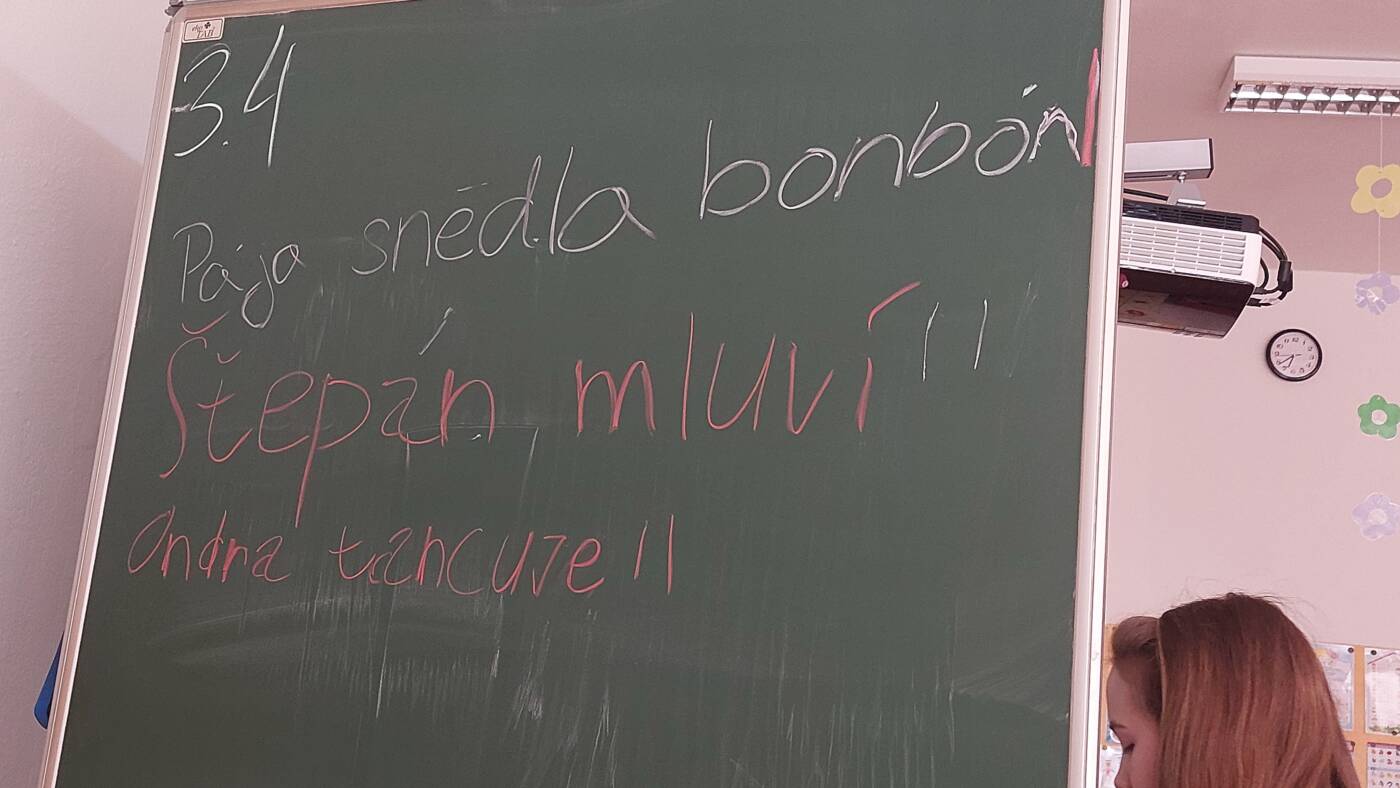 3.4
Pája snědla bonbón |
Štěpán mluví ||
Ondra tancuje ||